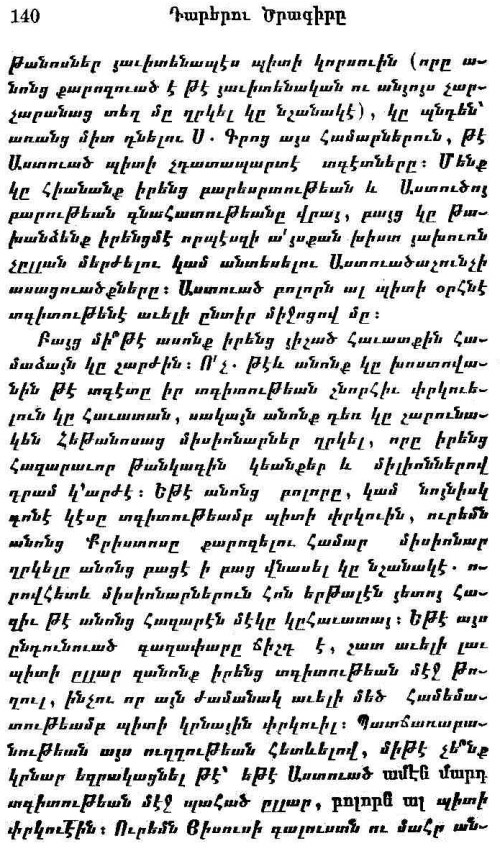 140 Դարերու Ծրագիրը
թանոսներ յաւիտենապէս պիտի կորսուին (որը ա-
նոնց քարոզուած է թէ յաւիտենական ու անյոյս չար-
չարանաց տեղ մը ղրկել կը նշանակէ), կը պնդեն՝
առանց միտ դնելու Ս. Գրոց այս համարներուն, թէ
Աստուած պիտի չդատապարտէ տգէտները։ Մենք
կը հիանանք իրենց բարեսրտութեան և Աստուծոյ
բարութեան գնահատութեանը վրայ, բայց կը թա-
խանձենք իրենցմէ որպէսզի ա՛յսքան խիստ յախուռն
չըլլան մերժելու կամ անտեսելու Աստուածաշունչի
ասացուածքները։ Աստուած բոլորն ալ պիտի օրհնէ
տգիտութենէ աւելի ընտիր միջոցով մը։
Բայց մի՞թէ ասոնք իրենց յիշած հաւատքին հա-
մաձայն կը շարժին։ Ո՛չ. թէև անոնք կը խոստովա-
նին թէ տգէտը իր տգիտութեան շնորհիւ փրկուե-
լուն կը հաւատան, սակայն անոնք դեռ կը շարունա-
կեն հեթանոսաց միսիոնարներ ղրկել, որը իրենց
հազարաւոր թանկագին կեանքեր և միլիոններով
դրամ կ՚արժէ։ Եթէ անոնց բոլորը, կամ նոյնիսկ
գոնէ կէսը տգիտութեամբ պիտի փրկուին, ուրեմն
անոնց Քրիստոսը քարոզելու համար միսիոնար
ղրկելը անոնց բացէ ի բաց վնասել կը նշանակէ. ո-
րովհետև միսիոնարներուն հոն երթալէն յետոյ հա-
զիւ թէ անոնց հազարէն մէկը կըհաւատայ։ Եթէ այս
ընդունուած գաղափարը ճիշդ է, շատ աւելի լաւ
պիտի ըլլար զանոնք իրենց տգիտութեան մէջ թո-
ղուլ, ինչու որ այն ժամանակ աւելի մեծ համեմա-
տութեամբ պիտի կրնային փրկուիլ։ Պատճառաբա-
նութեան այս ուղղութեան հետևելով, միթէ չե՞նք
կրնար եզրակացնել թէ՝ եթէ Աստուած ամէն մարդ
տգիտութեան մէջ պահած ըլլար, բոլորն ալ պիտի
փրկուէին։ Ուրեմն Յիսուսի գալուստն ու մահը ան-